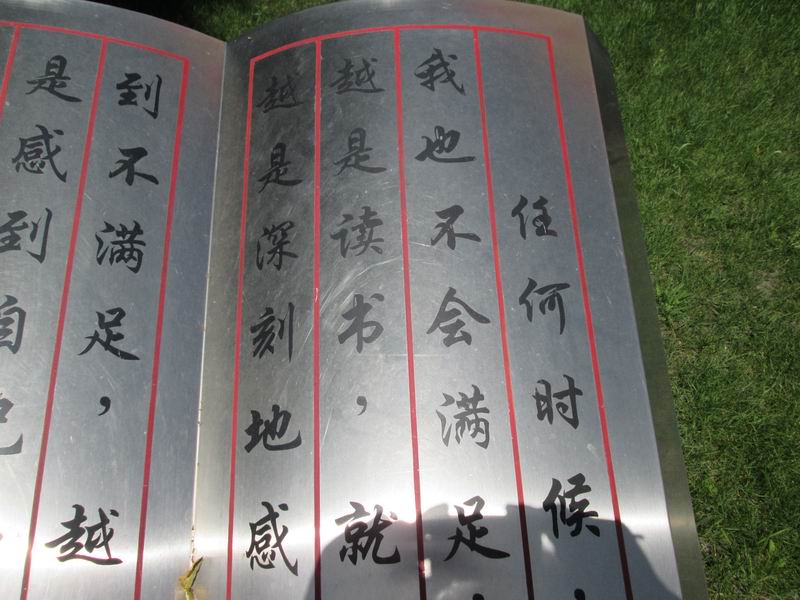 任何时候，
我也不会满足，
越是读书，就
越是深刻地感
到不满足，越
是感到自己